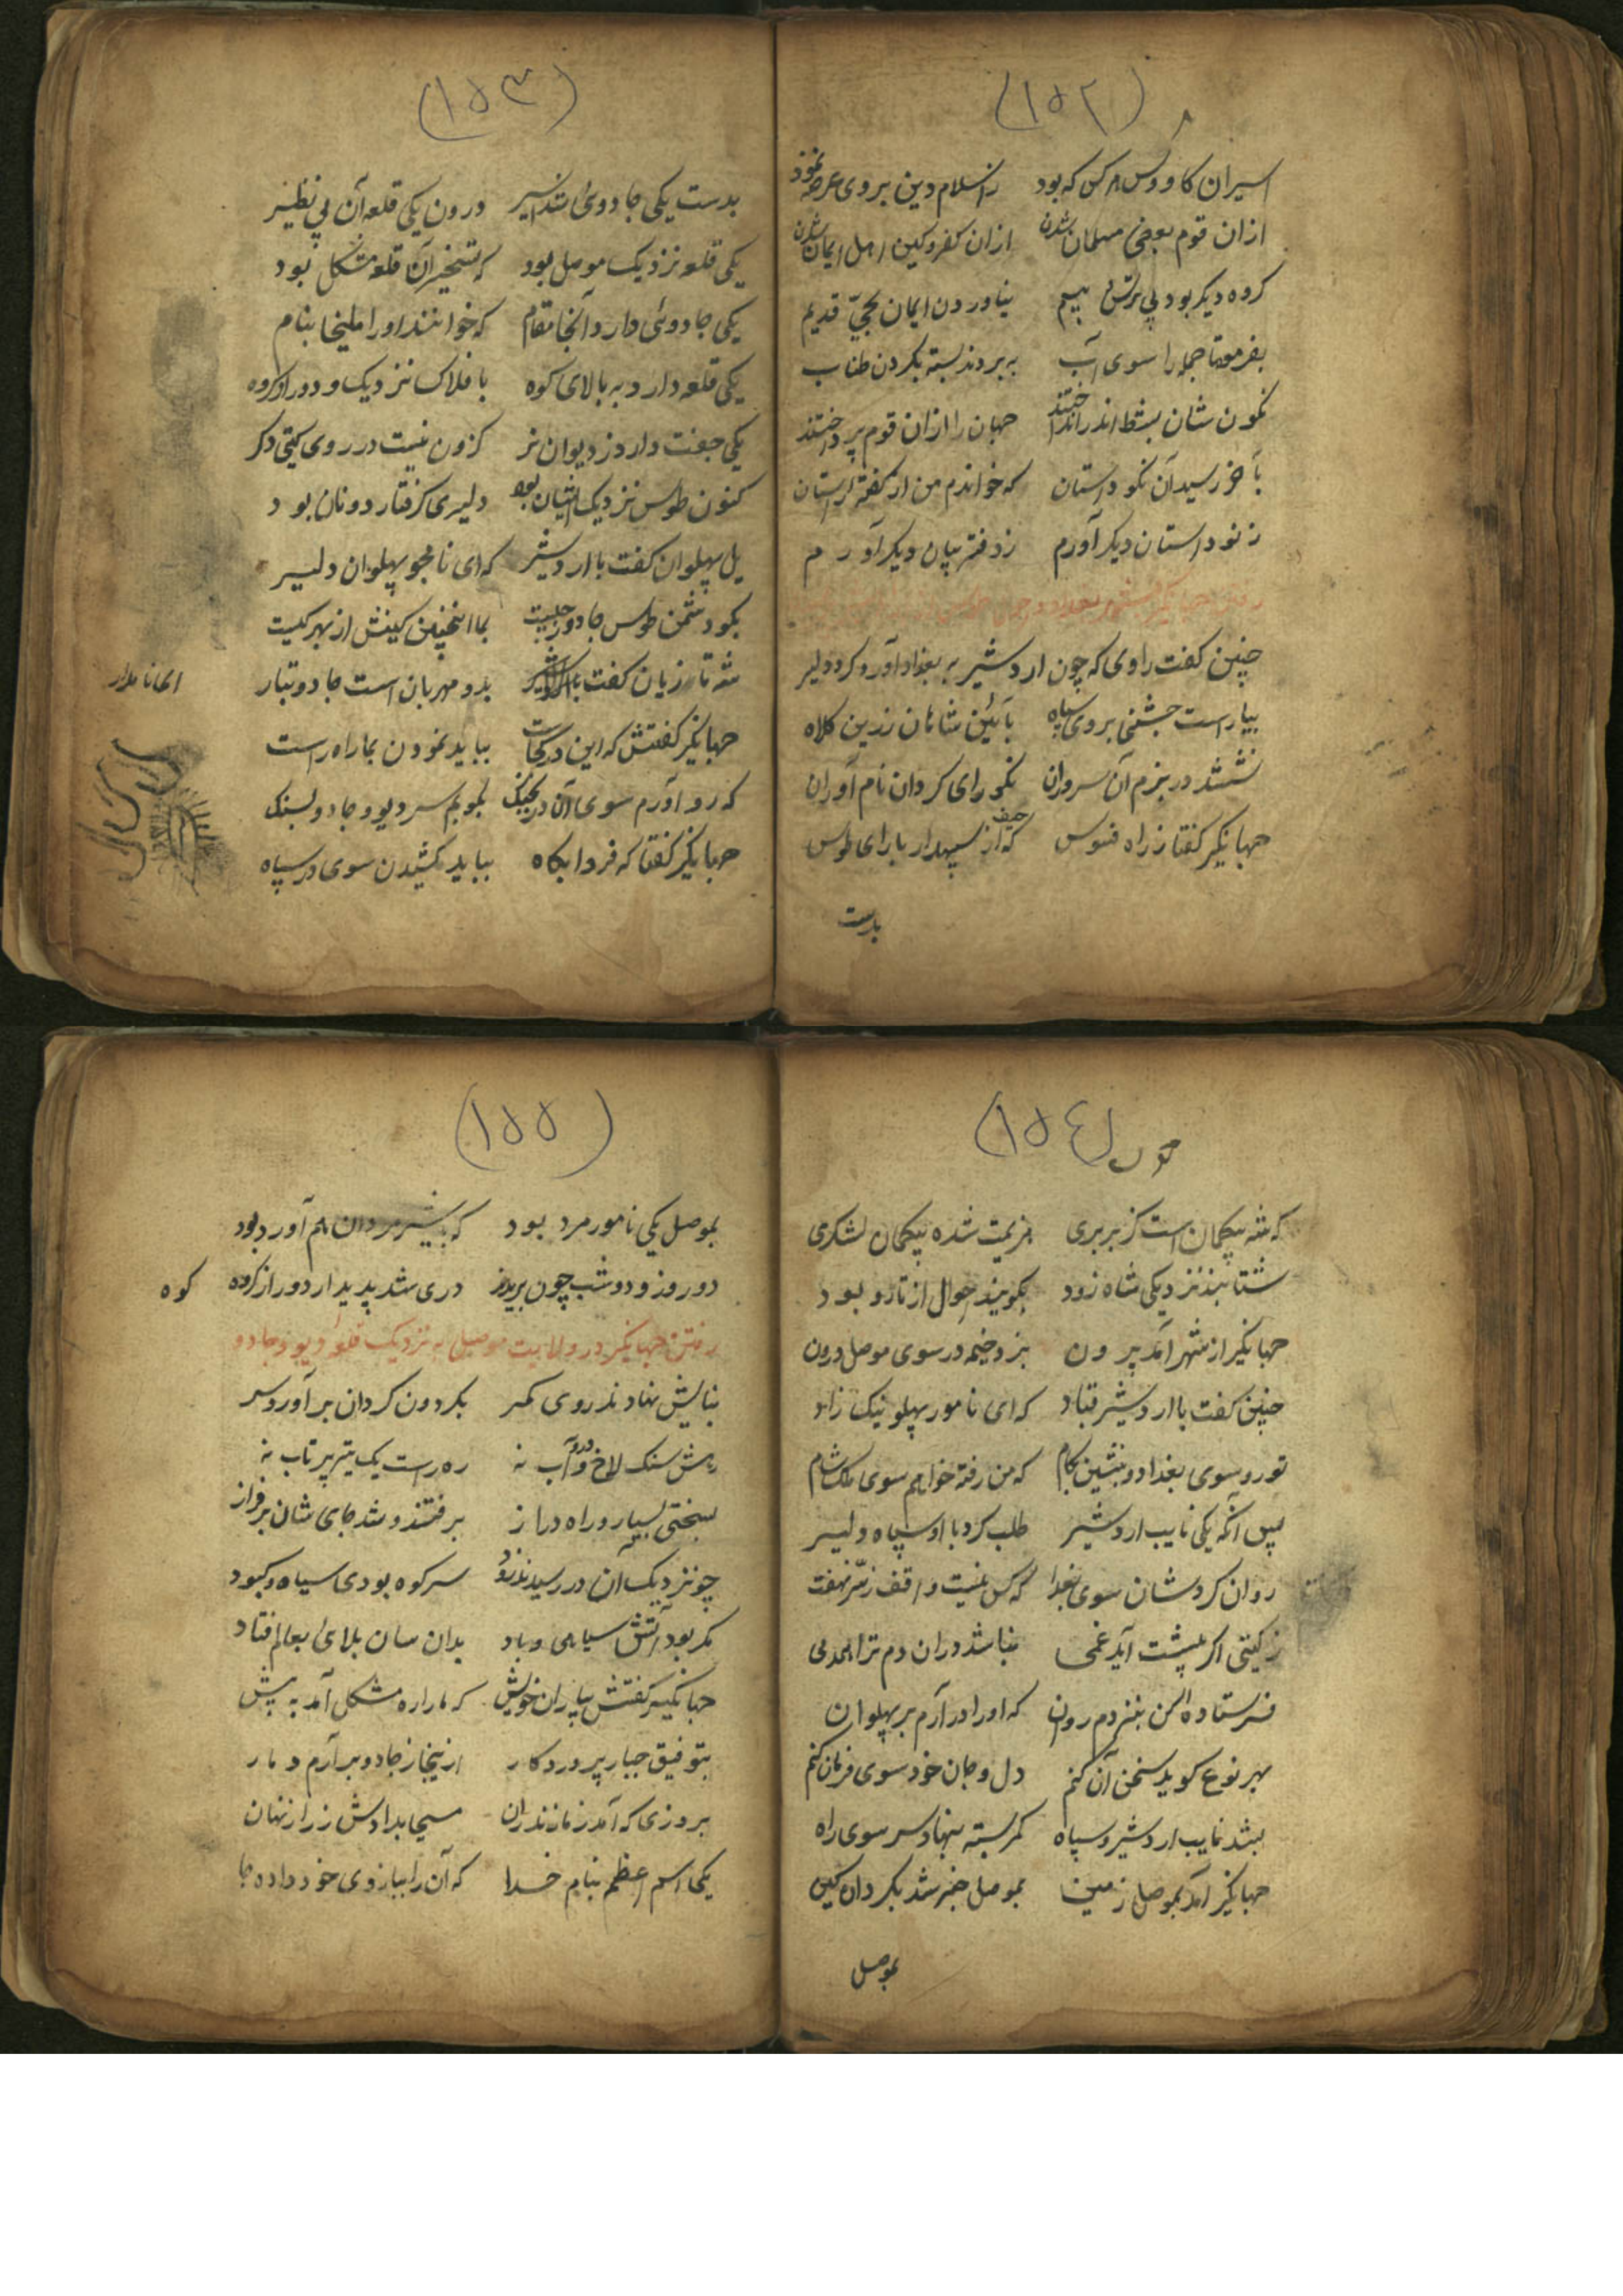 (۱۵۲)
اسیران کاووس هر کس که بود ز اسلام دین بر وی عرضه نمود
ازان قوم بعضی مسلمان شدن ازان کفر و کین اهل ایمان شدن
کروه دیکر بود بی ترس بیم نیاوردن ایمان بحی قدیم
بفرموتا جمله را سوی آب ببردند بسته بکردن طناب
نکون شان بشط اندر انداختند جهان را ازان قوم پرداختند
بآخر رسید آن نکو داستان که خواندم من از کفتهٔ راستان
ز نو داستان دیکر آورم ز دفتر بیان دیکر آورم
چنین کفت راوی که چون اردشیر به بغداد آورد کرد دلیر
بیاراست جشنی بروی سپاه بآئین شاهان زرین کلاه
نشستند در بزم آن سروران نکو رای کردان نام آوران
جهانکیر کفتا ز راه فسوس که حیف از سپهدار بارای طوس
بدست
(۱۵۳)
بدست یکی جادوی شد اسیر درون یکی قلعه آن بی نظیر
یکی قلعه نزدیک موصل بود که تسخیر آن قلعه مشکل بود
یکی جادوئی دارد آنجا مقام که خوانند او را ملیخا بنام
یکی قلعه دارد به بالای کوه بافلاک نزدیک و دور از کروه
یکی جفت دارد ز دیوان نر کزون نیست در روی کیتی دکر
کنون طوس نزدیک ایشان بود دلیری کرفتار دونان بود
یل پهلوان کفت با اردشیر که ای نامجو پهلوان دلیر
بکو دشمن طوس جادو ز چیست بما اینچنین کینش از بهر کیست
شه تازیان کفت با اردشیر بدو مهربان است جادو تبار
ای نامدار
جهانکیر کفتش که این در کجاست بباید نمودن بما راه راست
که رو آورم سوی آن در بجنک بکوبم سر دیو و جادو بسنک
جهانکیر کفتا که فردا بکاه بباید کشیدن سوی در سپاه
(۱۵٤)
که شه بیکمان است کز بربری هزیمت شده بیکمان لشکری
شتابند نزدیکی شاه زود بکویند احوال از تار و بود
جهانکیر از شهر آمد برون بزد خیمه در سوی موصل درون
چنین کفت با اردشیر قباد که ای نامور پهلو نیک زاد
تو رو سوی بغداد و بنشین بکام که من رفته خواهم سوی ملک شام
پس آنکه یکی نایب اردشیر طلب کرد با او سپاه دلیر
روان کردشان سوی بغداد که کس نیست واقف ز سر نهفت
ز کیتی اکر پیشت آید غمی نباشد دران دم ترا همدمی
فرستاده کن بنزدم روان که او را در آرم بر پهلوان
بهر نوع کوید سخن آن کنم دل و جان خود سوی فرمان کنم
بشد نایب اردشیر و سپاه کمر بسته بنهاد سر سوی راه
جهانکیر آمد بموصل زمین بموصل خبر شد بکردان کین
بموصل
(۱۵۵)
بموصل یکی نامور مرد بود که با شیر مردان هم آورد بود
دو روز و دو شب چون بریدند دری شد پدیدار دور از کروه
کوه
رفتن جهانکیر در ولایت موصل به نزدیک قلعه دیو و جادو
بنایش نهادند روی کمر بکردون کردان بر آورد سر
رهش سنک لاخ و درو آب نه ره راست یک تیر پرتاب نه
بسختی بسیار و راه دراز برفتند و شد جای شان بر فراز
چو نزدیک آن در رسیدند زود سر کوه بودی سیاه و کبود
مکر بود آتش سیاهی و باد بدان سان بلای بعالم فتاد
جهانکیر کفتش بیاران خویش که ما را ره مشکل آمد به پیش
بتوفیق جبار پروردکار ازینجا ز جادو بر آرم دمار
بروزی که آمد ز مازندران مسیحا بدادش ز راز نهان
یکی اسم اعظم بنام خدا که آن را ببازوی خود داده جا